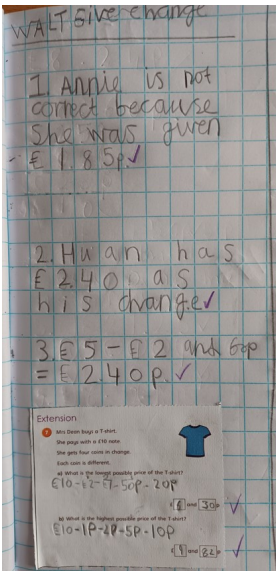 WALT Give change
1. Annie is not
correct because
she was given
€ 1.85p.
2. Huan has
€2.40 as
his change
3. €5-€2 and 60p
= €2.40p.
Extension
7 Mrs Dean buys a T-shirt.
She pays with a £10 note.
She gets four coins in change.
Each coin is different.
a) What is the lowest possible price of the T-shirt?
€10-£2-£1-50p-20p
£ 6 and 30 p
b) What is the highest possible price of the T-shirt?
€10-1P-2P-5P-10P
£ 9 and 82 p